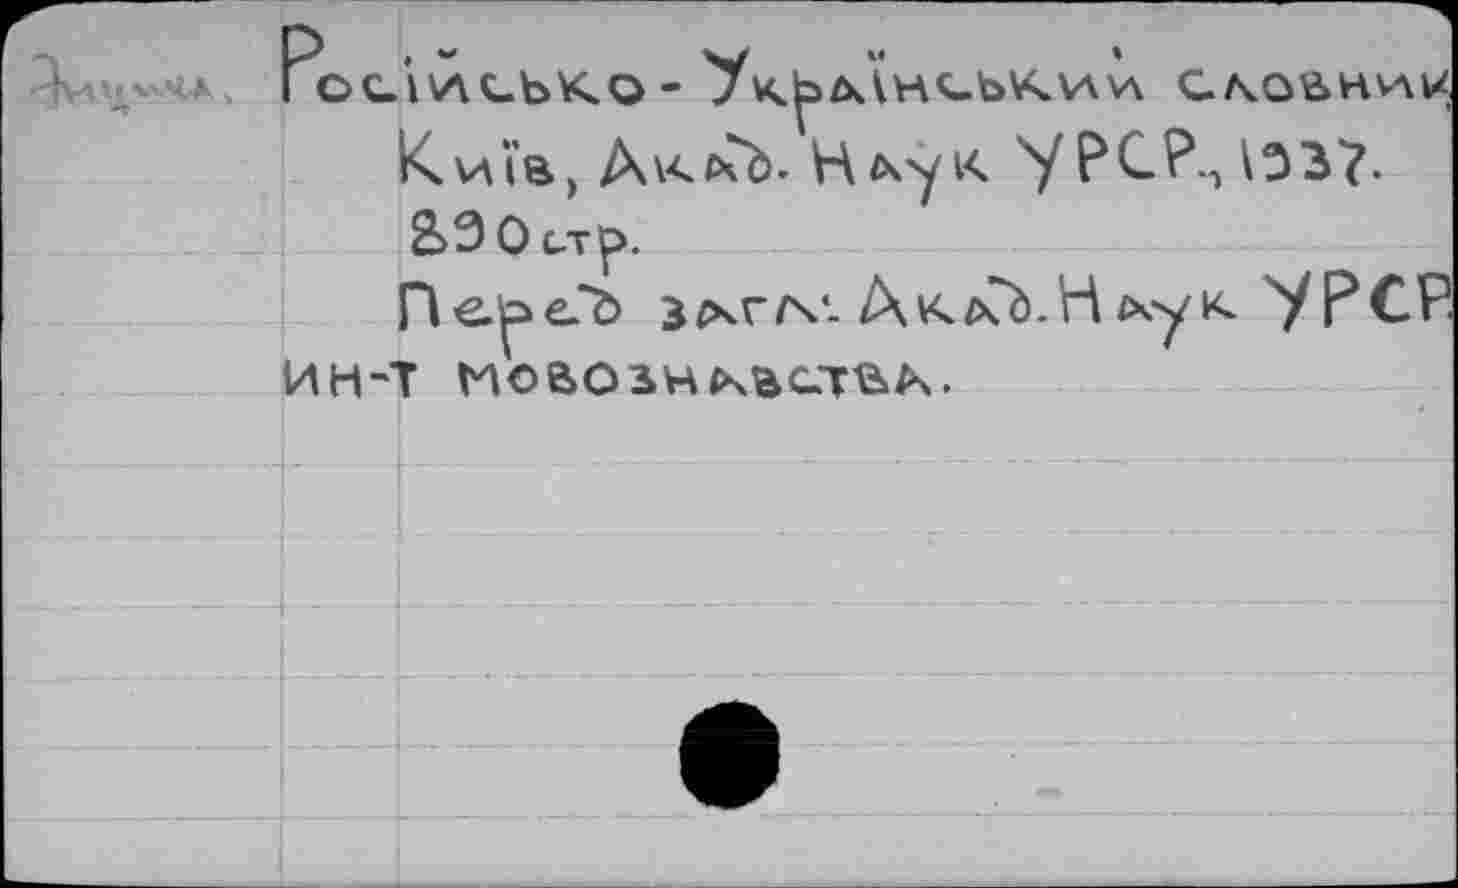 Російсько - Український словник
Київ, Акад. Наук УРСР., 1937.
890 стр.
Перед загл: Акад. Наук УРСР.
ин-т мовознавства.